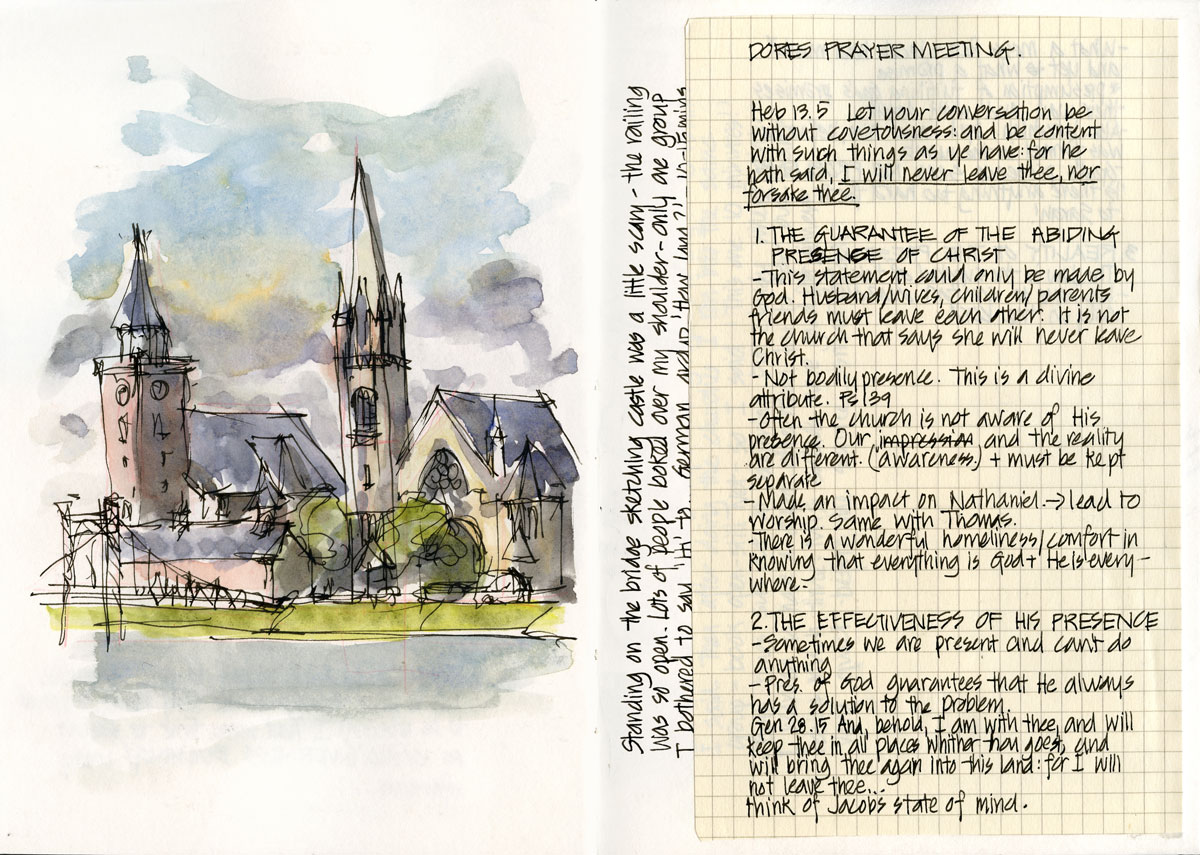 Standing on the bridge sketching castle was a little scary - the railing
was so open. Lots of people looked over my shoulder - only are group
I bothered to say 'Hi' to. German
DORES PRAYER MEETING.
Heb 13.5 Let your conversation be
without covetousness: and be content
with such things as ye have: for he
hath said, I will never leave thee, nor
forsake thee.
1. THE GUARANTEE OF THE ABIDING
PRESENCE OF CHRIST
- This statement could only be made by
God. Husband/wives, children/parents
friends must leave each other. It is not
the church that says she will never leave
Christ.
- Not bodily presence. This is a divine
attribute. Ps 139
- Often the church is not aware of His
presence. Our impression and the reality
are different. (awareness) + must be kept
separate
- Made an impact on Nathaniel. → lead to
worship. Same with Thomas.
- There is a wonderful homeliness/comfort in
knowing that everything is God + He is every-
where.
2. THE EFFECTIVENESS OF HIS PRESENCE
- Sometimes we are present and can't do
anything
- Pres. of God guarantees that He always
has a solution to the problem.
Gen 28.15 And, behold, I am with thee, and will
keep thee in all places whither thou goest, and
will bring thee again into this land: for I will
not leave thee...
think of Jacob's state of mind.